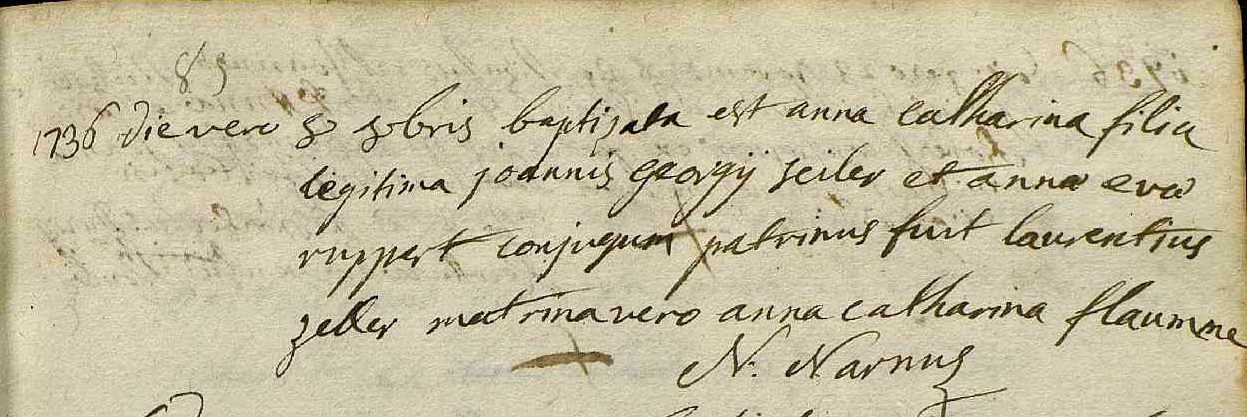 89
1736 die vero 30 xbris baptizata est anna catharina filia
legitima joannis georgij seiler et anna eva
ruppert conjugum patrinus fuit laurentius
zeller matrina vero anna catharina flaumme
N: Narnus